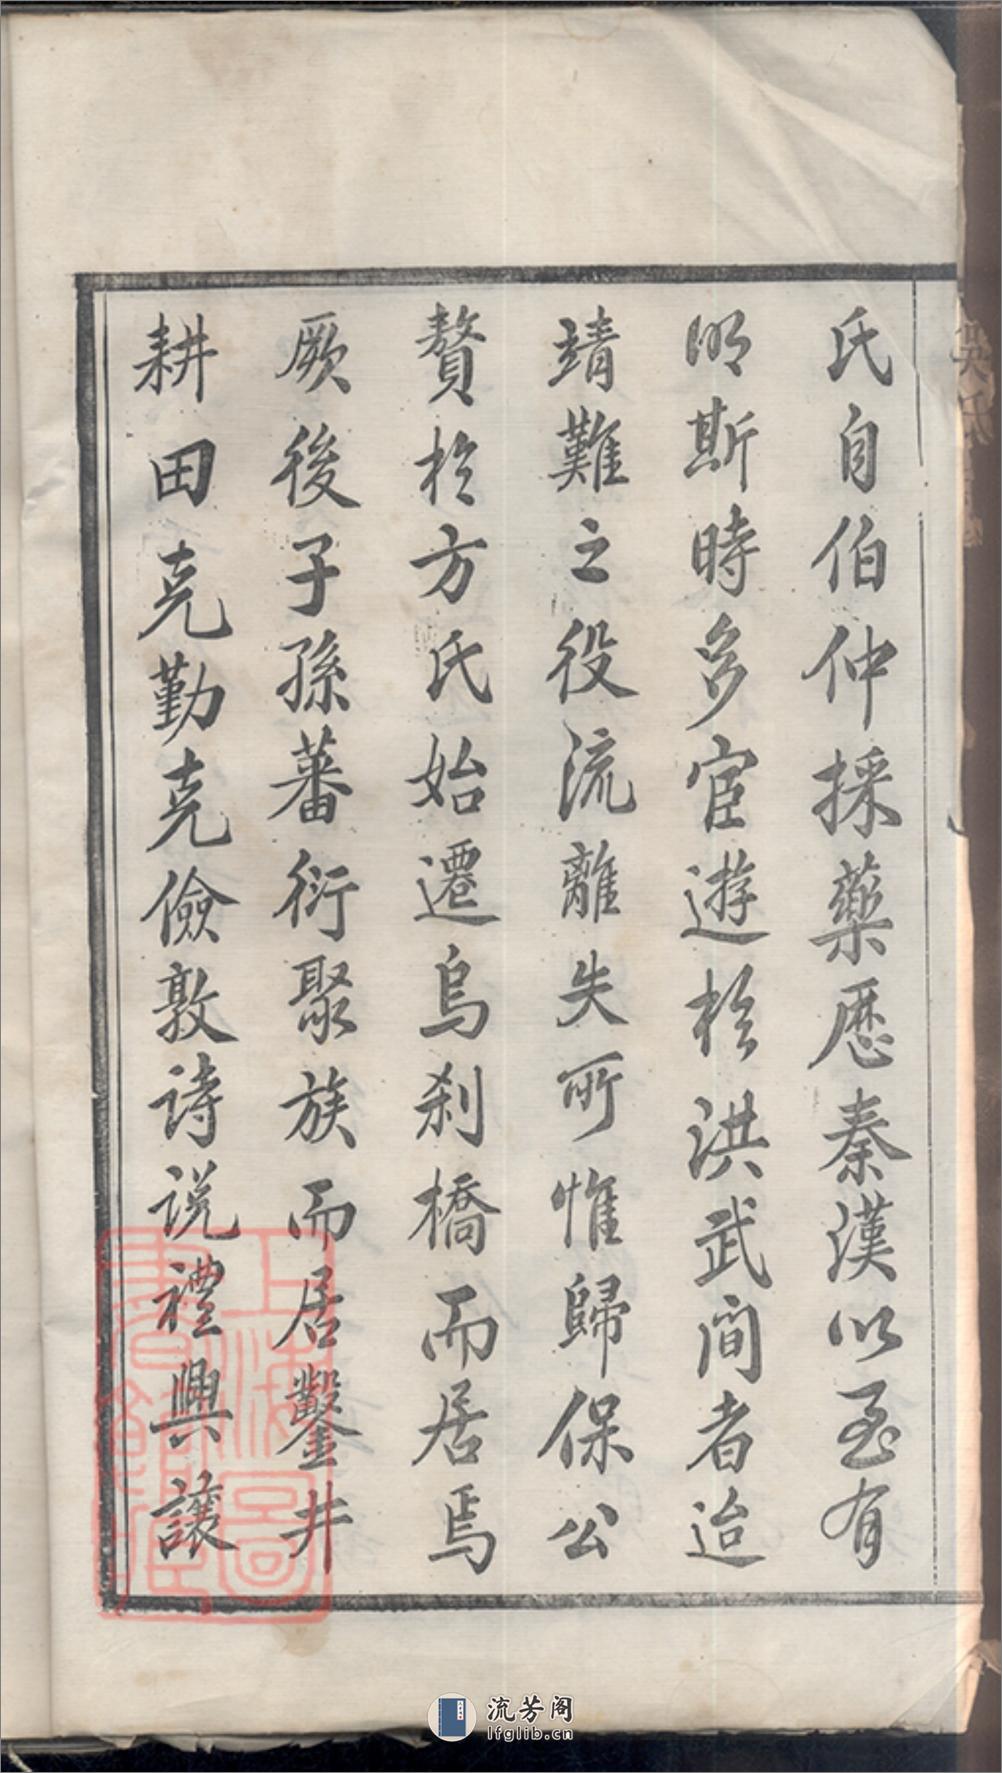 氏自伯仲採藥歷秦漢以至有
明斯時多宦遊於洪武間者迨
靖難之役流離失所惟歸保公
贅於方氏始遷烏刹橋而居焉
厥後子孫蕃衍聚族而居鑿井
耕田克勤克儉敦詩説禮興讓
上海圖書館藏
流芳阁
lfglib.cn